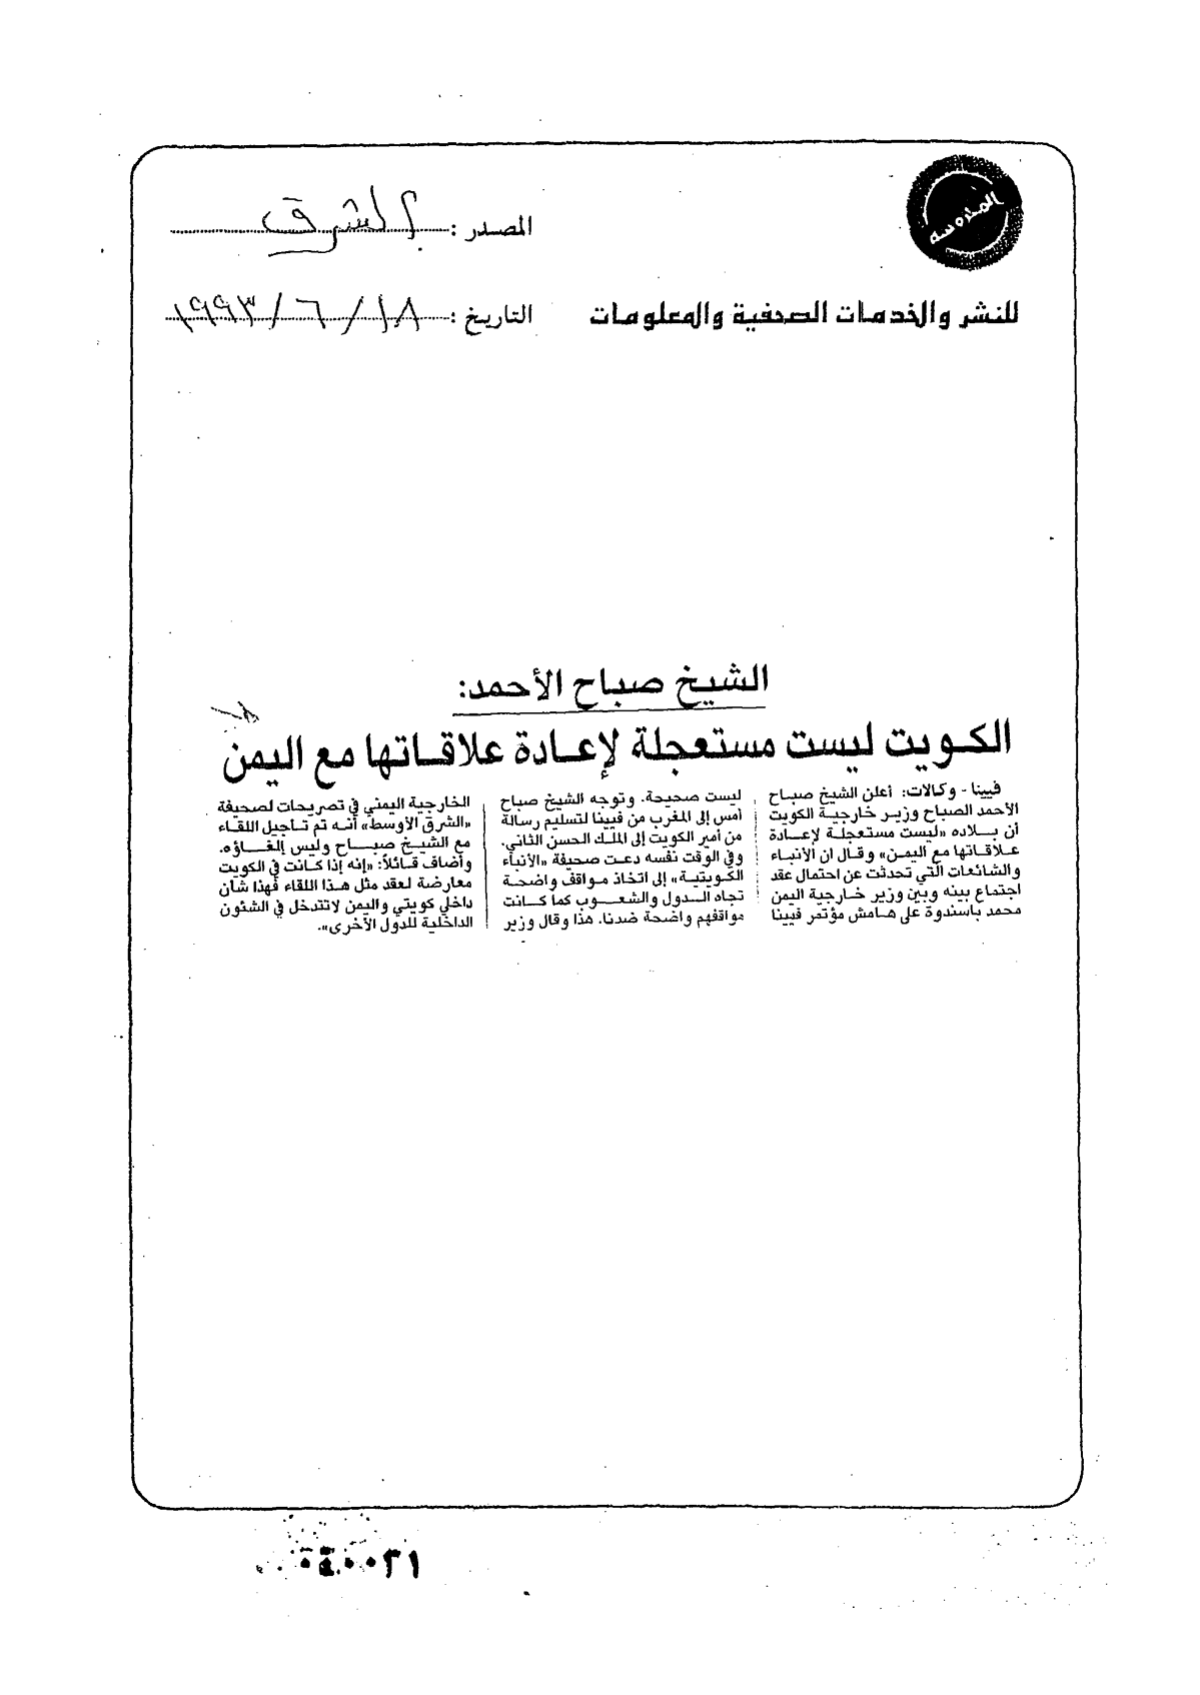 المصدر : الشرق
للنشر والخدمات الصحفية والمعلومات
التاريخ : ١٨ / ٦ / ١٩٩٣
الشيخ صباح الأحمد:
الكويت ليست مستعجلة لإعادة علاقاتها مع اليمن
فيينا - وكالات: أعلن الشيخ صباح
الأحمد الصباح وزير خارجية الكويت
أن بلاده «ليست مستعجلة لإعادة
علاقاتها مع اليمن» وقال ان الأنباء
والشائعات التي تحدثت عن احتمال عقد
اجتماع بينه وبين وزير خارجية اليمن
محمد باسندوة على هامش مؤتمر فيينا
ليست صحيحة. وتوجه الشيخ صباح
أمس إلى المغرب من فيينا لتسليم رسالة
من أمير الكويت إلى الملك الحسن الثاني.
وفي الوقت نفسه دعت صحيفة «الأنباء
الكويتية» إلى اتخاذ مواقف واضحة
تجاه الدول والشعوب كما كانت
مواقفهم واضحة ضدنا. هذا وقال وزير
الخارجية اليمني في تصريحات لصحيفة
«الشرق الأوسط» أنه تم تأجيل اللقاء
مع الشيخ صباح وليس إلغاؤه.
وأضاف قائلاً: «إنه إذا كانت في الكويت
معارضة لعقد مثل هذا اللقاء فهذا شأن
داخلي كويتي واليمن لاتتدخل في الشئون
الداخلية للدول الآخرى».